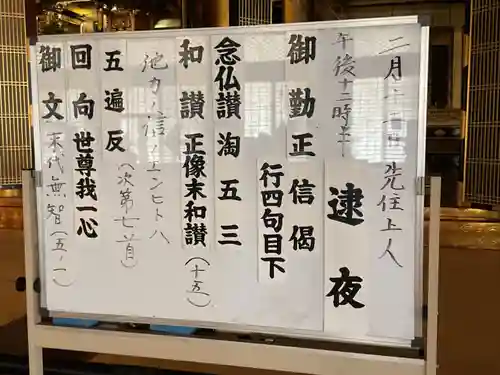 二月十二日 先住上人
逮夜
午後十二時半
御勤 正信偈
行四句目下
念仏讃 淘五三
和讃 正像末和讃(十五)
池カノ信ノエンヒトハ
五遍反(次第七首)
回向 世尊我一心
御文 末代無智(五ノ一)